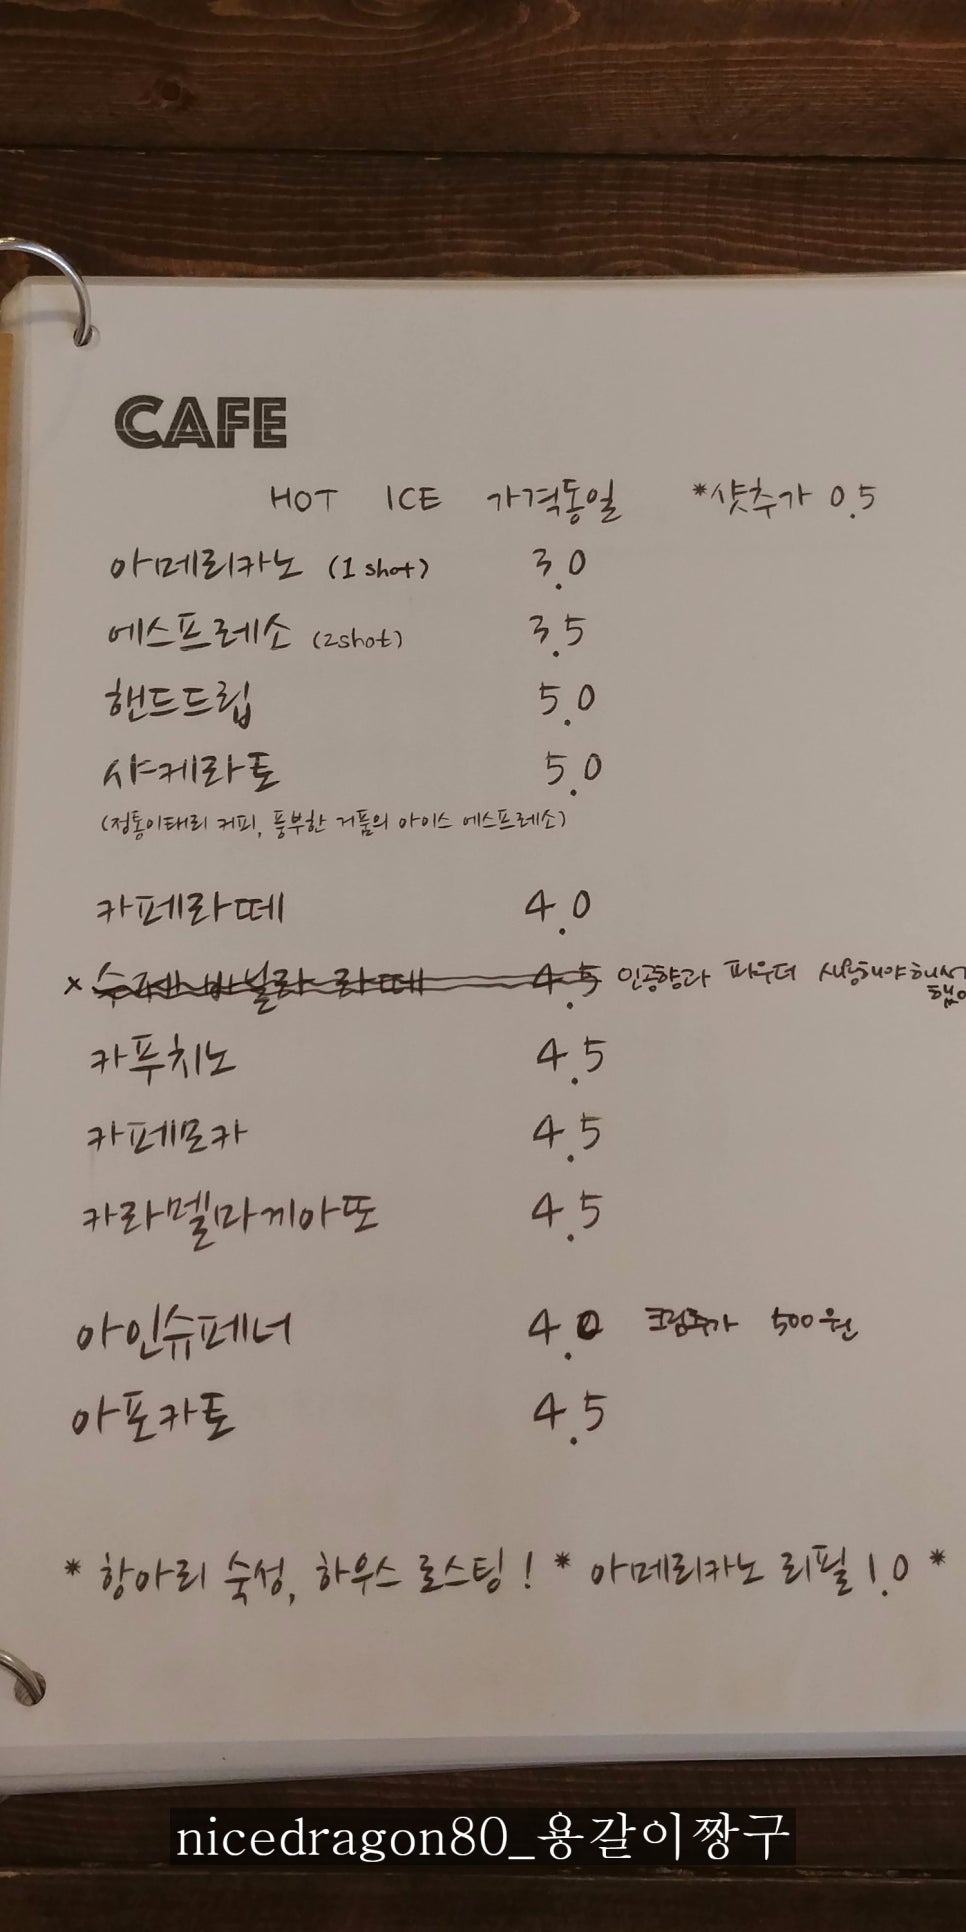 CAFE
HOT ICE 가격동일 *샷추가 0.5
아메리카노 (1 shot) 3.0
에스프레소 (2shot) 3.5
핸드드립 5.0
샤케라토 5.0
(정통이태리 커피, 풍부한 거품의 아이스 에스프레소)
카페라떼 4.0
x 수제 바닐라 라떼 4.5 인공향과 파우더 사용해야해서
카푸치노 4.5
카페모카 4.5
카라멜마끼아또 4.5
아인슈페너 4.0 크림추가 500원
아포카토 4.5
* 항아리 숙성, 하우스 로스팅! * 아메리카노 리필 1.0 *
nicedragon80_용갈이짱구